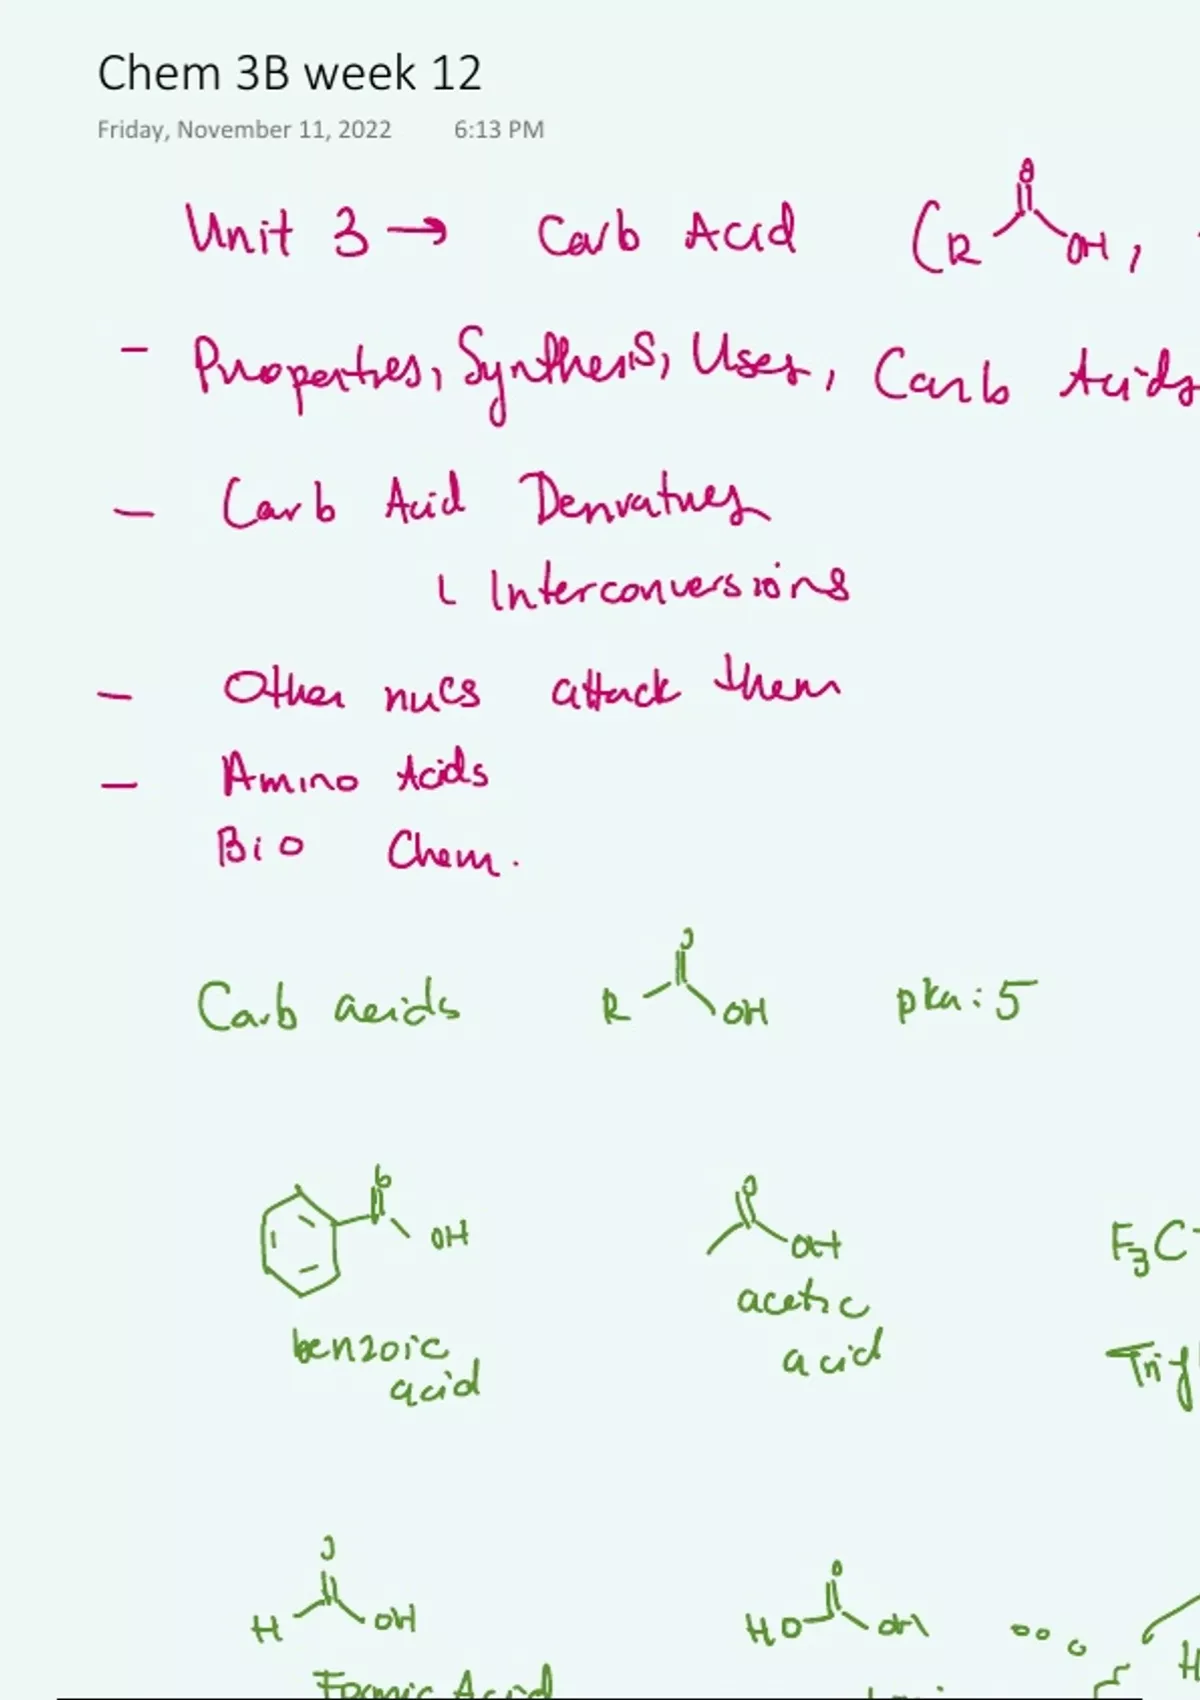 Chem 3B week 12
Friday, November 11, 2022 6:13 PM
Unit 3 → Carb Acid (R O OH,
- Properties, Synthesis, Uses, Carb Acids
- Carb Acid Derivatives
Interconversions
- Other nucs attack them
- Amino Acids
Bio Chem.
Carb acids R O OH pka: 5
O OH O OH F3C
benzoic acid
acetic acid
Trif
H O OH HO O OH
Formic Acid